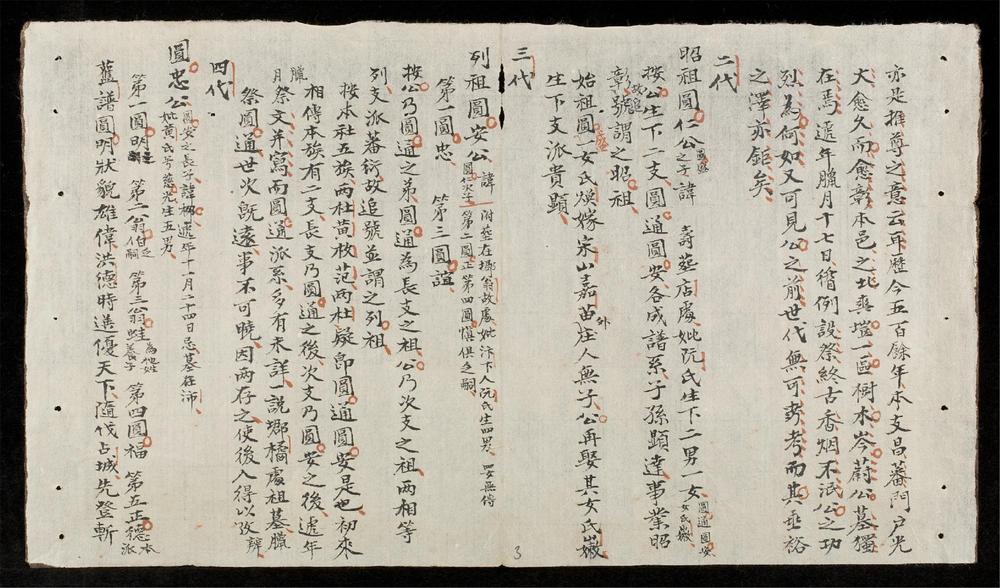 亦是撰尊之意云耳歷今五百餘年本支昌蕃門戶光
大愈久而愈彰本邑之北喪塏一區樹木岑蔚公墓獨
在焉遞年臘月十七日循例設祭終古香烟不泯公之功
烈為何如又可見公之前世代無可考而其垂裕
之澤亦鉅矣
二代
昭祖圓仁公之子諱 壽 葬店處妣阮氏生下二男一女圓通圓安女氏嫩
按公生下二支圓通圓安各成譜系子孫顯達事業昭
彰故追號謂之昭祖
始祖圓一女氏煥嫁宋山嘉苗外庄人無子公再娶其女氏嫩
生下支派貴顯
三代
列祖圓安公圓仁次子諱 附葬在塸翁故處妣汴下人阮氏生四男
第一圓忠 第三圓誼 第二圓正第四圓慎俱乏嗣
按公乃圓通之弟圓通為長支之祖公乃次支之祖兩相等
列支派蕃衍故追號並謂之列祖
按本社五族兩杜黃枚范兩杜疑即圓通圓安是也初來
相傳本族有二支長支乃圓通之後次支乃圓安之後遞年
臘月祭文并寫而圓通派系多有未詳一說鄉橘處祖墓臘
祭圓通世次既遠事不可曉因兩存之使後人得以攷辨
四代
圓忠公圓安之長子諱柳遞年十一月二十四日忌墓在沛
妣黃氏号慈光生五男
第一圓明 第二翁伯乏嗣 第三翁蛙為他姓養子 第四圓福 第五正德本派
藍譜圓明狀貌雄偉洪德時進優天下隨伐占城先登斬
3